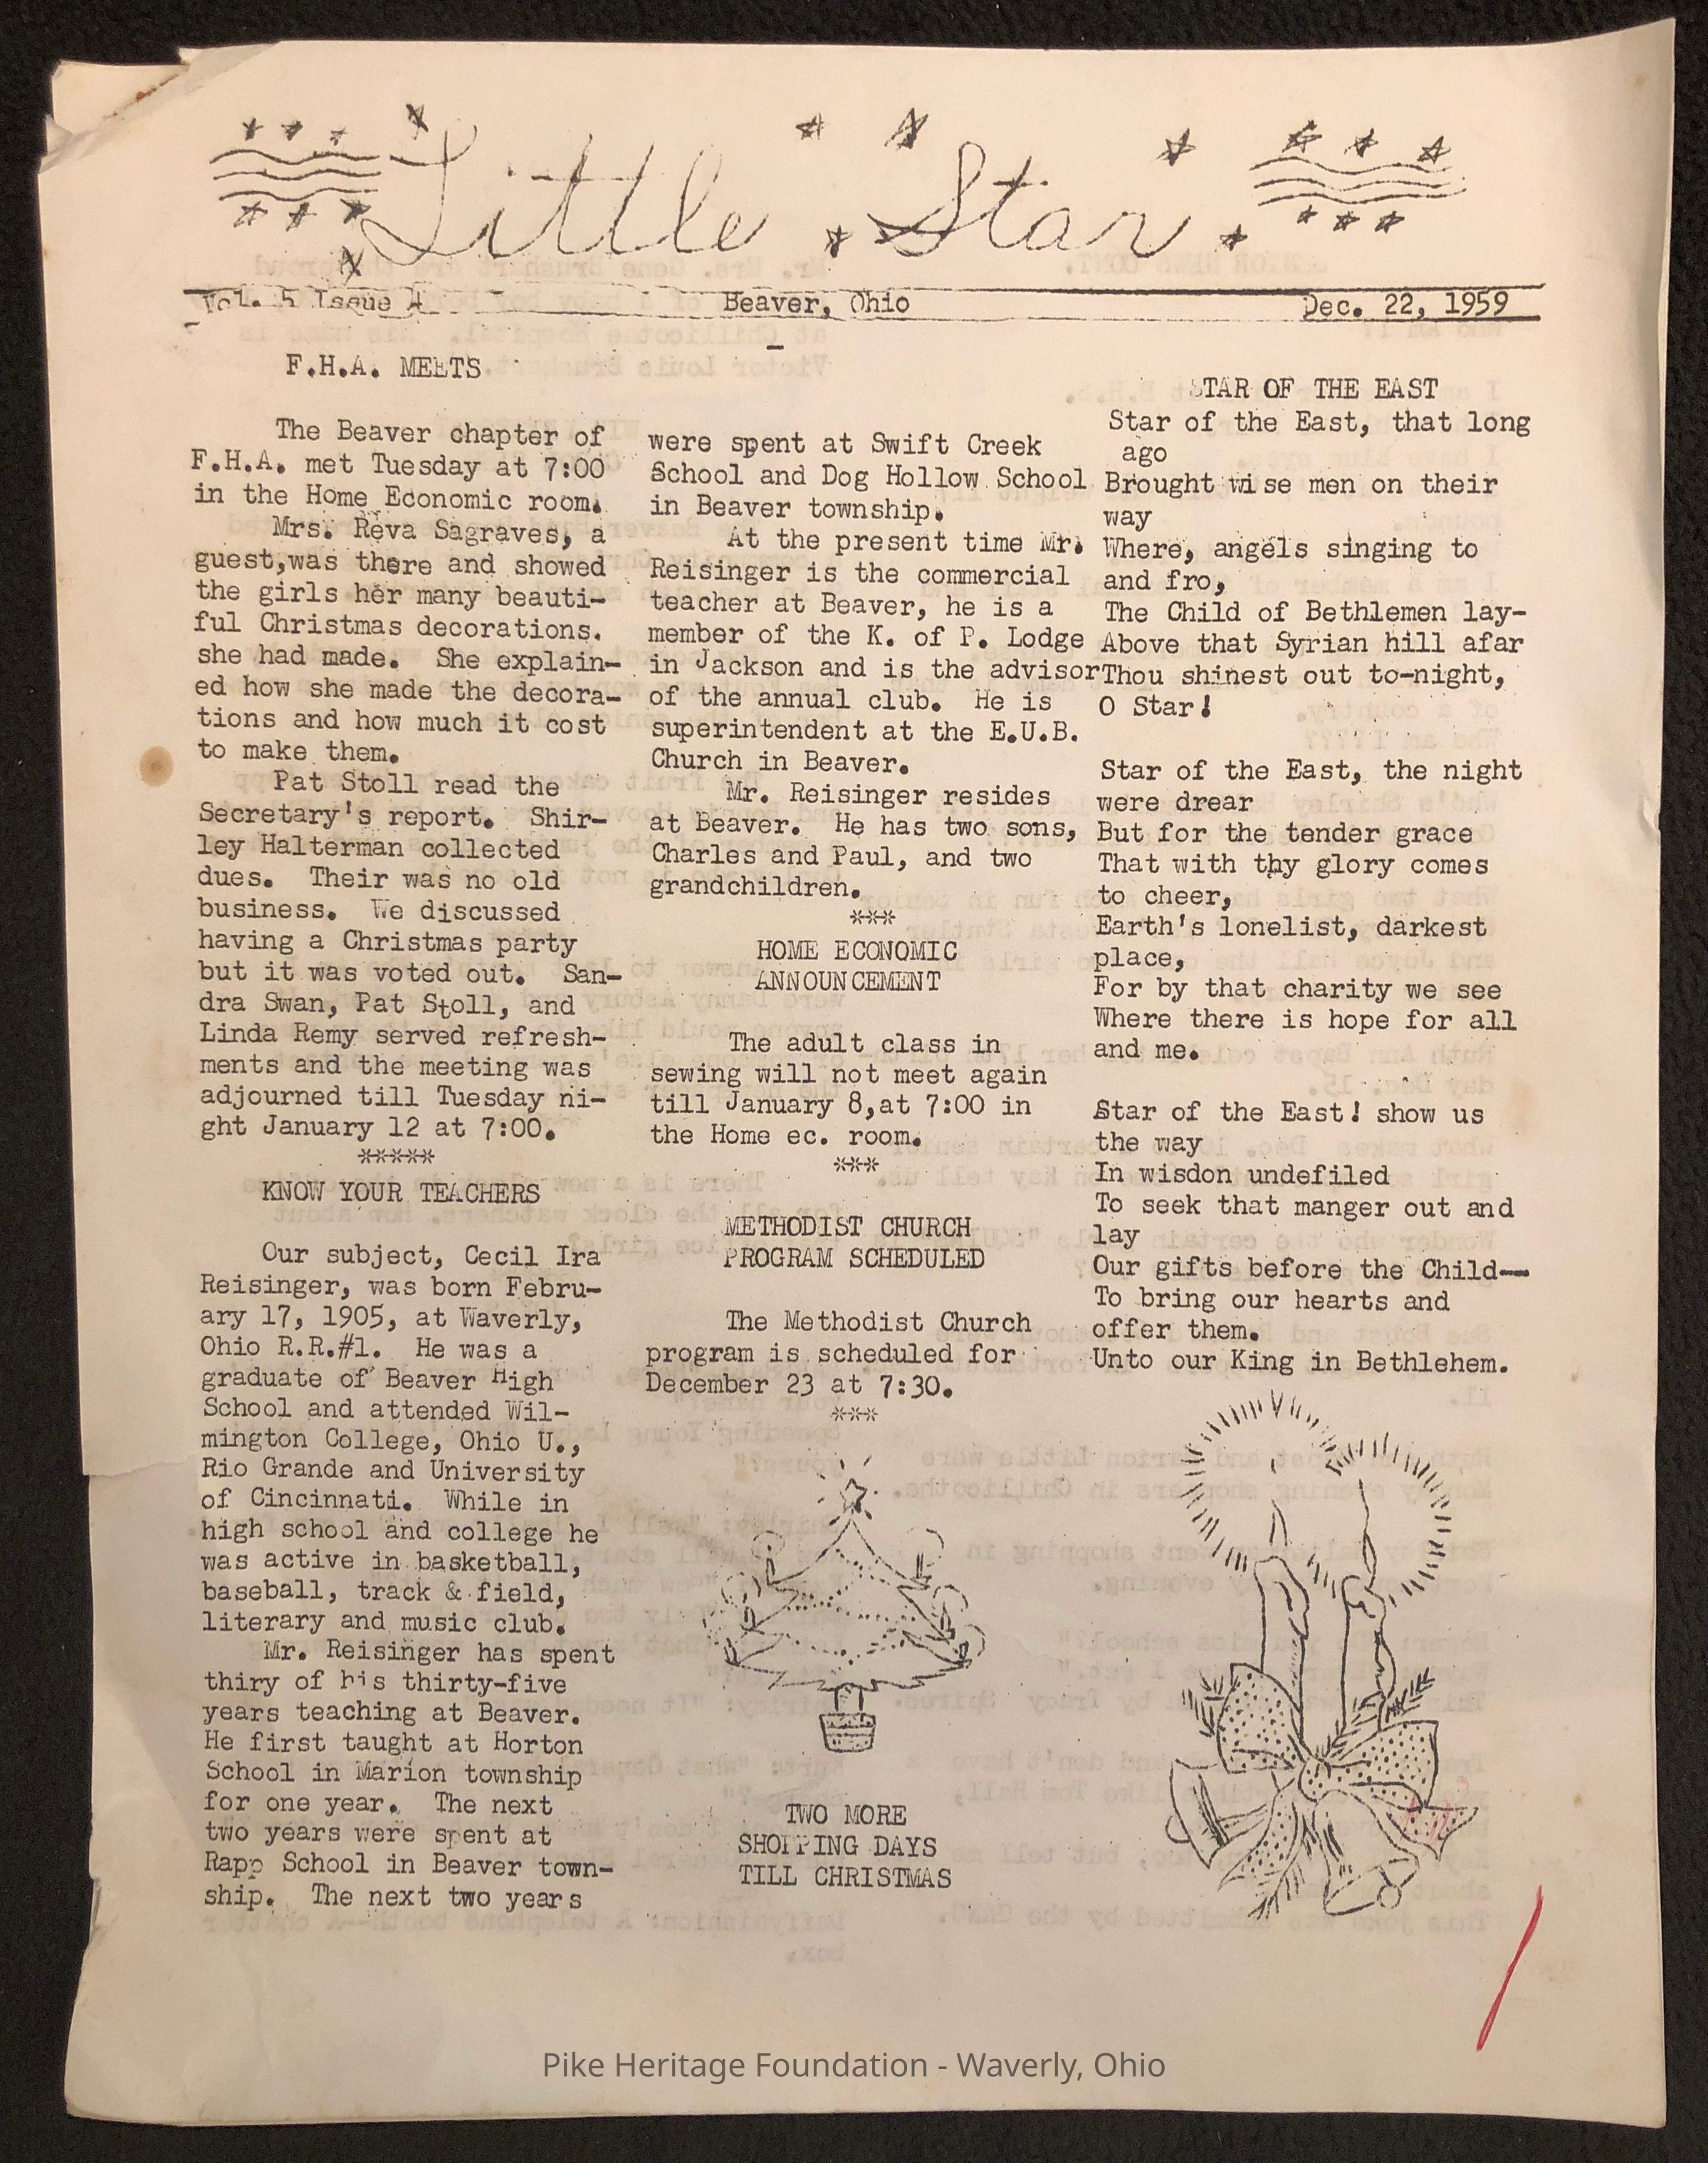 Little Star
Vol. 5 Issue 4 Beaver, Ohio Dec. 22, 1959
F.H.A. MEETS
The Beaver chapter of
F.H.A. met Tuesday at 7:00
in the Home Economic room.
Mrs. Reva Sagraves, a
guest,was there and showed
the girls her many beauti-
ful Christmas decorations.
she had made. She explain-
ed how she made the decora-
tions and how much it cost
to make them.
Pat Stoll read the
Secretary's report. Shir-
ley Halterman collected
dues. Their was no old
business. We discussed
having a Christmas party
but it was voted out. San-
dra Swan, Pat Stoll, and
Linda Remy served refresh-
ments and the meeting was
adjourned till Tuesday ni-
ght January 12 at 7:00.
*****
KNOW YOUR TEACHERS
Our subject, Cecil Ira
Reisinger, was born Febru-
ary 17, 1905, at Waverly,
Ohio R.R.#1. He was a
graduate of Beaver High
School and attended Wil-
mington College, Ohio U.,
Rio Grande and University
of Cincinnati. While in
high school and college he
was active in basketball,
baseball, track & field,
literary and music club.
Mr. Reisinger has spent
thiry of his thirty-five
years teaching at Beaver.
He first taught at Horton
School in Marion township
for one year. The next
two years were spent at
Rapp School in Beaver town-
ship. The next two years
were spent at Swift Creek
School and Dog Hollow School
in Beaver township.
At the present time Mr.
Reisinger is the commercial
teacher at Beaver, he is a
member of the K. of P. Lodge
in Jackson and is the advisor
of the annual club. He is
superintendent at the E.U.B.
Church in Beaver.
Mr. Reisinger resides
at Beaver. He has two sons,
Charles and Paul, and two
grandchildren.
***
HOME ECONOMIC
ANNOUNCEMENT
The adult class in
sewing will not meet again
till January 8,at 7:00 in
the Home ec. room.
***
METHODIST CHURCH
PROGRAM SCHEDULED
The Methodist Church
program is scheduled for
December 23 at 7:30.
***
TWO MORE
SHOPPING DAYS
TILL CHRISTMAS
STAR OF THE EAST
Star of the East, that long
ago
Brought wise men on their
way
Where, angels singing to
and fro,
The Child of Bethlemen lay-
Above that Syrian hill afar
Thou shinest out to-night,
O Star!
Star of the East, the night
were drear
But for the tender grace
That with thy glory comes
to cheer,
Earth's lonelist, darkest
place,
For by that charity we see
Where there is hope for all
and me.
Star of the East! show us
the way
In wisdon undefiled
To seek that manger out and
lay
Our gifts before the Child--
To bring our hearts and
offer them.
Unto our King in Bethlehem.
Pike Heritage Foundation - Waverly, Ohio